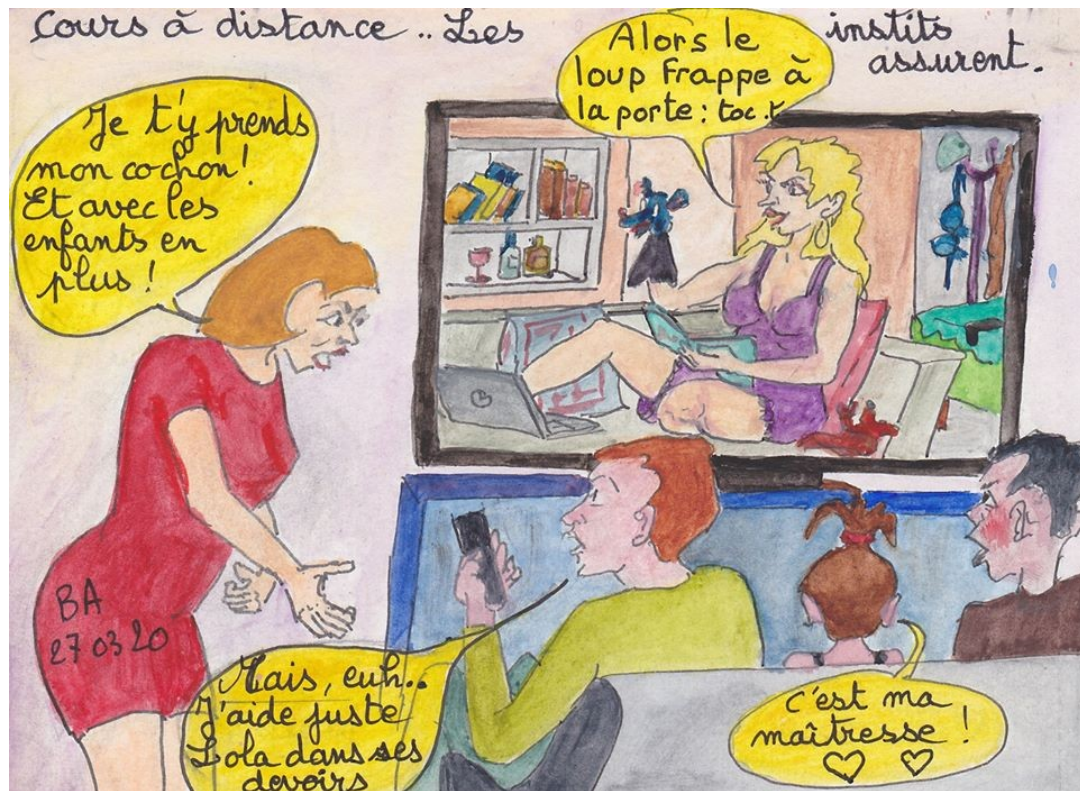 Cours à distance .. Les instits
assurent.
Alors le
loup frappe à
la porte : toc.t
Je t'y prends
mon cochon!
Et avec les
enfants en
plus !
BA
27 03 20
Mais, euh..
J'aide juste
Lola dans ses
devoirs
C'est ma
maîtresse !